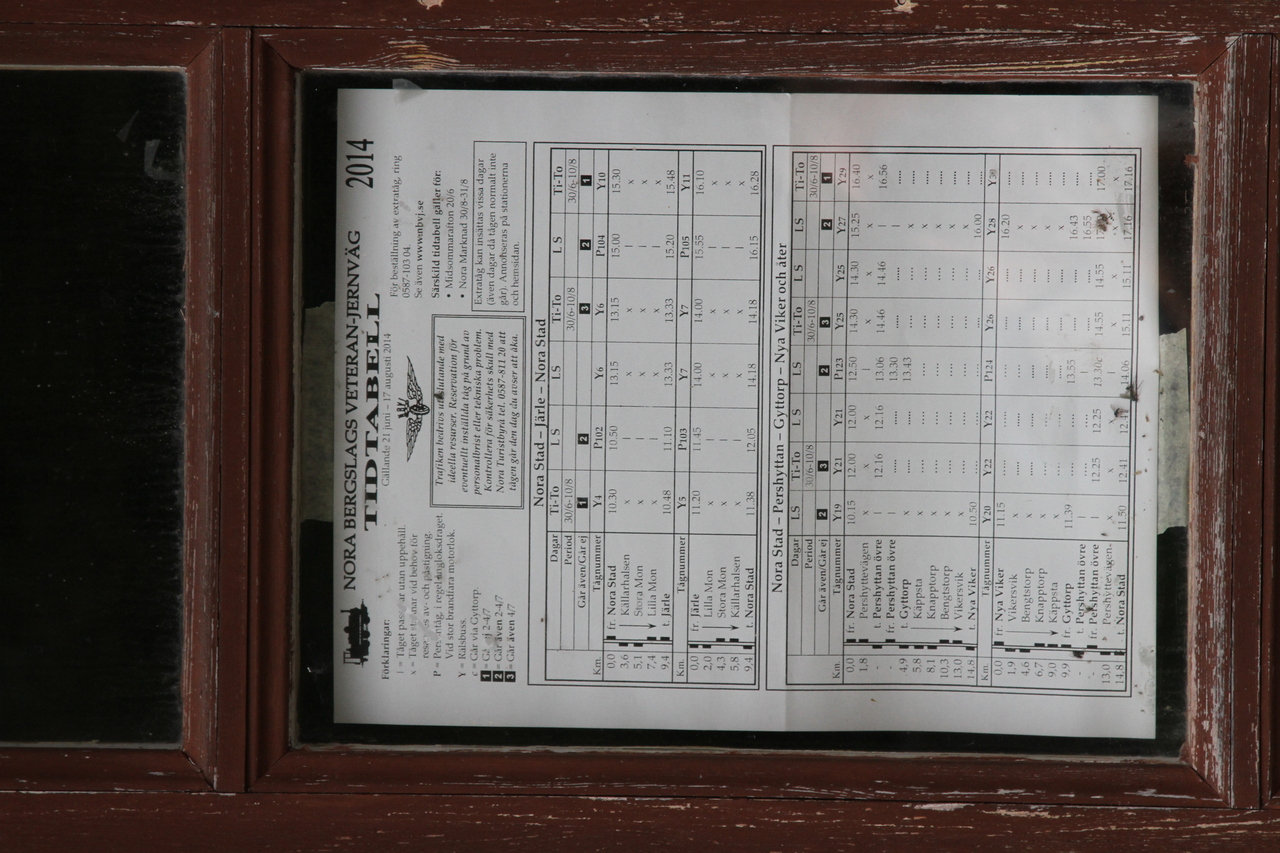 NORA BERGSLAGS VETERAN-JERNVÄG
TIDTABELL 2014
Gällande 21 juni – 17 augusti 2014
Förklaringar:
| = Tåget passerar utan uppehåll.
x = Tåget stannar vid behov för
resandes av- och påstigning.
P = Persontåg, i regel ångloksdraget.
Vid stor brandfara motorlok.
Y = Rälsbuss.
c = Går via Gyttorp.
1 = Går ej 2-4/7
2 = Går även 2-4/7
3 = Går även 4/7
Trafiken bedrivs uteslutande med
ideella resurser. Reservation för
eventuellt inställda tåg på grund av
personalbrist eller tekniska problem.
Kontrollera för säkerhets skull med
Nora Turistbyrå tel. 0587-811 20 att
tågen går den dag du avser att åka.
För beställning av extratåg, ring
0587-103 04.
Se även www.nbvj.se
Särskild tidtabell gäller för:
• Midsommarafton 20/6
• Nora Marknad 30/8-31/8
Extratåg kan insättas vissa dagar
(även dagar då tågen normalt inte
går). Annonseras på stationerna
och hemsidan.
Nora Stad – Järle – Nora Stad
Dagar Ti-To L S LS Ti-To L S Ti-To
Period 30/6-10/8 30/6-10/8 30/6-10/8
Går även/Går ej 1 2 3 2 1
Km. Tågnummer Y4 P102 Y6 Y6 P104 Y10
0,0 fr. Nora Stad 10.30 10.50 13.15 13.15 15.00 15.30
3,6 Källarhalsen x | x x | x
5,1 Stora Mon x | x x | x
7,4 Lilla Mon x | x x | x
9,4 t. Järle 10.48 11.10 13.33 13.33 15.20 15.48
Km. Tågnummer Y5 P103 Y7 Y7 P105 Y11
0,0 fr. Järle 11.20 11.45 14.00 14.00 15.55 16.10
2,0 Lilla Mon x | x x | x
4,3 Stora Mon x | x x | x
5,8 Källarhalsen x | x x | x
9,4 t. Nora Stad 11.38 12.05 14.18 14.18 16.15 16.28
Nora Stad – Pershyttan – Gyttorp – Nya Viker och åter
Dagar LS Ti-To L S LS Ti-To L S LS Ti-To
Period 30/6-10/8 30/6-10/8 30/6-10/8
Går även/Går ej 2 3 2 3 2 1
Km. Tågnummer Y19 Y21 Y21 P123 Y25 Y25 Y27 Y29
0,0 fr. Nora Stad 10.15 12.00 12.00 12.50 14.30 14.30 15.25 16.40
1,8 Pershyttevägen x x x | x x x x
- t. Pershyttan övre | 12.16 12.16 13.06 14.46 14.46 | 16.56
- fr. Pershyttan övre | ..... ..... 13.30 ..... ..... | .....
4,9 t. Gyttorp x ..... ..... 13.43 ..... ..... x .....
5,8 Käppsta x ..... ..... ..... ..... ..... x .....
8,1 Knapptorp x ..... ..... ..... ..... ..... x .....
10,3 Bengtstorp x ..... ..... ..... ..... ..... x .....
13,0 Vikersvik x ..... ..... ..... ..... ..... x .....
14,8 t. Nya Viker 10.50 ..... ..... ..... ..... ..... 16.00 .....
Km. Tågnummer Y20 Y22 Y22 P124 Y26 Y26 Y28 Y30
0,0 fr. Nya Viker 11.15 ..... ..... ..... ..... ..... 16.20 .....
1,9 Vikersvik x ..... ..... ..... ..... ..... x .....
4,6 Bengtstorp x ..... ..... ..... ..... ..... x .....
6,7 Knapptorp x ..... ..... ..... ..... ..... x .....
9,0 Käppsta x ..... ..... ..... ..... ..... x .....
9,9 fr. Gyttorp 11.39 ..... ..... 13.55 ..... ..... 16.43 .....
- t. Pershyttan övre | ..... ..... | ..... ..... 16.55 .....
- fr. Pershyttan övre | 12.25 12.25 13.30c 14.55 14.55 17.00
13,0 Pershyttevägen x x x x
14,8 t. Nora Stad 11.50 12.41 12.41 14.06 15.11 15.11 17.16 17.16